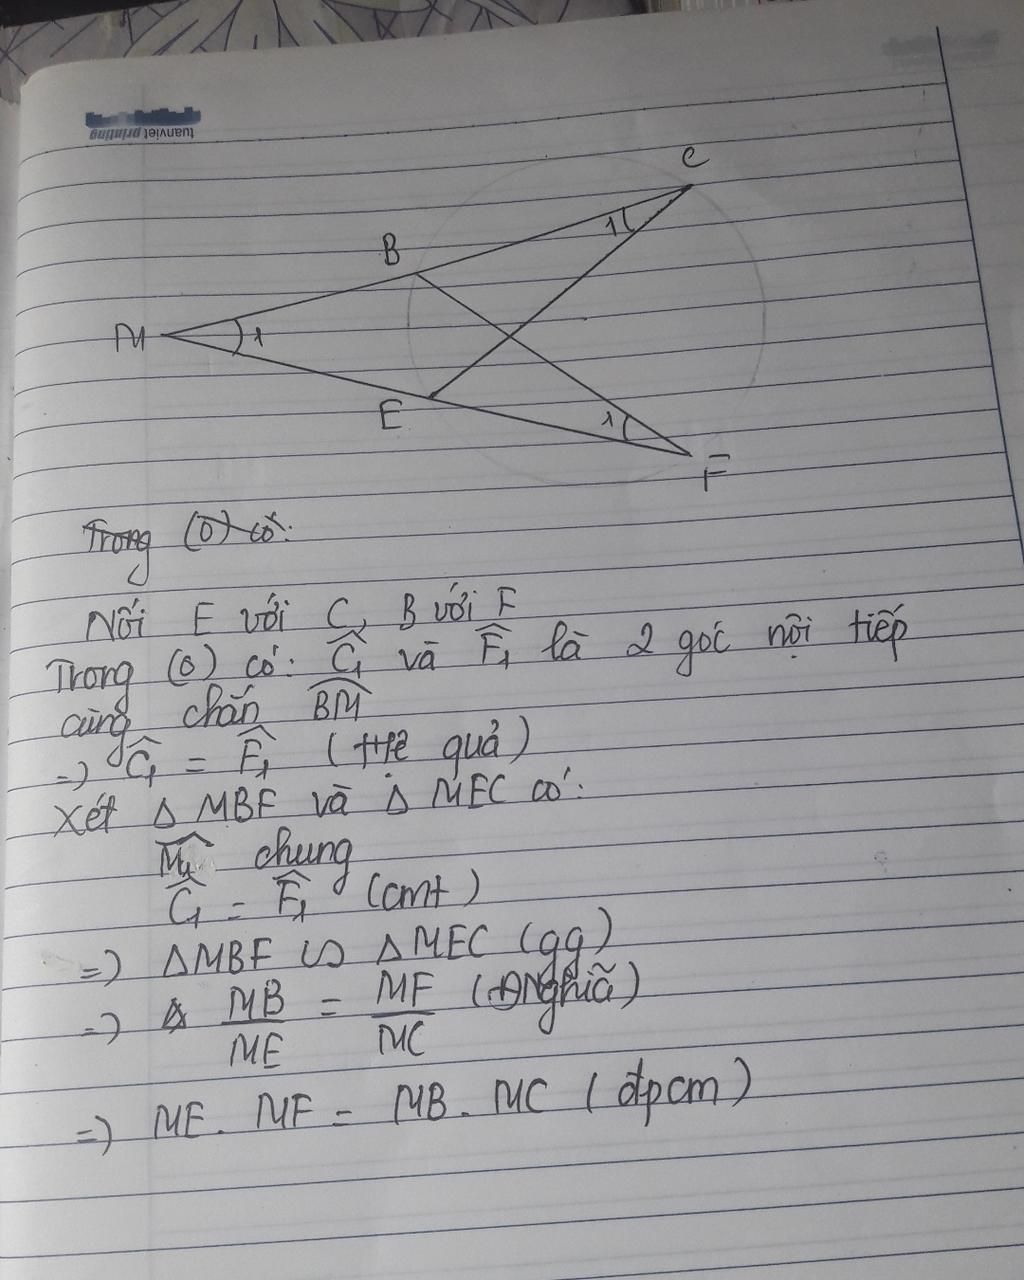 tuanviet printing
C
B
1
M
1
E
1
F
Trong (O) có:
Nối E với C, B với F
Trong (O) có: Ĉ₁ và F̂₁ là 2 góc nội tiếp
cùng chắn B͡M
=> Ĉ₁ = F̂₁ (Hệ quả)
Xét Δ MBF và Δ MEC có:
M̂₁ chung
Ĉ₁ = F̂₁ (cmt)
=> ΔMBF ∽ ΔMEC (gg)
=> MB/ME = MF/MC (ĐNghiã)
=> ME. MF = MB. MC (đpcm)